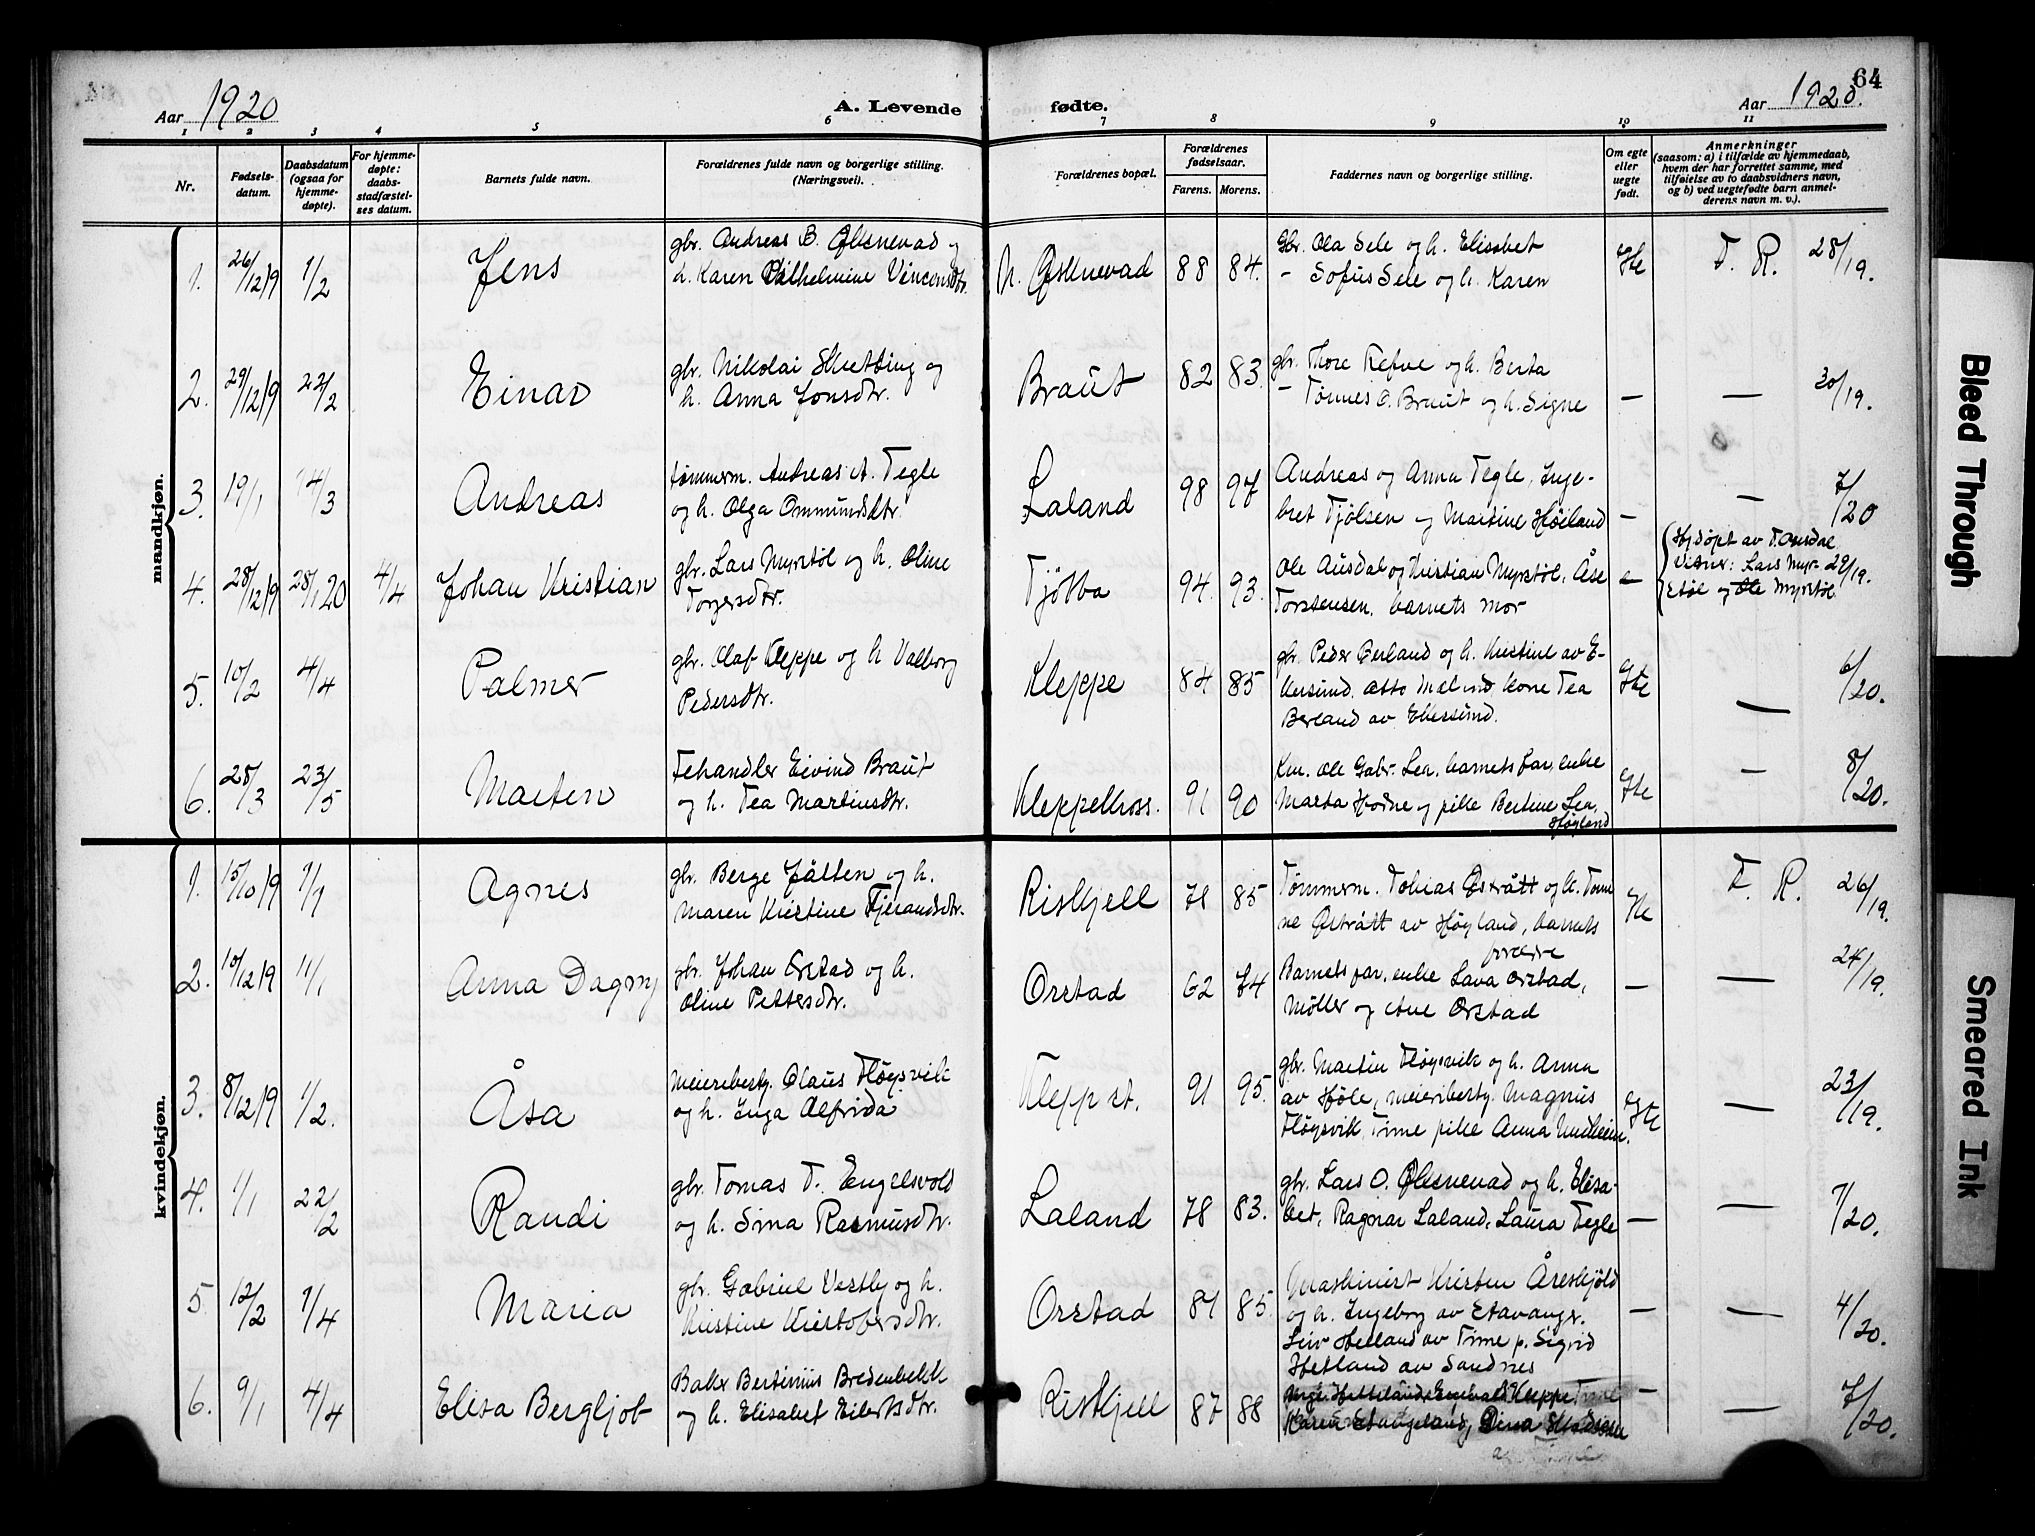 64
Aar 1920
A. Levende fødte.
Aar 1920.
1 2 3 4 5 6 7 8 9 10 11
Nr.
Fødsels-
datum.
Daabsdatum
(ogsaa for
hjemme-
døpte).
For hjemme-
døpte:
daabs-
stadfæstel-
ses datum.
Barnets fulde navn.
Forældrenes fulde navn og borgerlige stilling.
(Næringsvei).
Forældrenes bopæl.
Forældrenes
fødselsaar.
Farens. Morens.
Faddernes navn og borgerlige stilling.
Om egte
eller
uegte
født.
Anmerkninger
(saasom: a) i tilfælde av hjemmedaab,
hvem der har forrettet samme, med
tilføielse av to daabsvidners navn,
og b) ved uegtefødte barn anmel-
derens navn m. v.).
mandkjøn.
1. 26/12 19 1/2 Jens
gbr. Andreas B. Øksnevad og
h. Karen Vilhelmine Vincensdtr.
N. Øksnevad 88 84.
Gbr. Ola Sele og h. Elisabet
- Sofus Sele og h. Karen
Gte F. R. 28/19.
2. 29/12 19 22/2 Einar
gbr. Nikolai Skretting og
h. Anna Jonsdtr.
Braut 82 83.
gbr. Thore Refve og h. Berta
- Tønnes O. Braut og h. Signe
— — 30/19.
3. 19/1 14/3 Andreas
tømmerm. Andreas A. Tegle
og h. Olga Ommundsdtr.
Laland 98 97
Andreas og Anna Tegle, Inge-
bret Tjølsen og Martine Høiland
— — 7/20
4. 28/12 19 28/1 20 4/4 Johan Kristian
gbr. Lars Myrstøl og h. Oline
Torgersdtr.
Tjøtta 94. 93.
Ole Ausdal og Kristian Myrstøl, Åse
Torstensen, barnets mor
— Hjdøpt av T. Ousdal
Vitner: Lars Myr- 29/19.
støl og Ole Myrstøl
5. 10/2 4/4 Palmer
gbr. Olaf Kleppe og h. Valborg
Pedersdtr.
Kleppe 84 85
gbr. Peder Berland og h. Kristine av E-
kersund. Otto Mæland, kone Tea
Berland av Ekersund.
Gte — 6/20.
6. 28/3 23/5 Marten
Fehandler Eivind Braut
og h. Tea Martinsdtr.
Kleppekross. 91 90
Km. Ole Gabr. Lea, barnets far, enke
Marta Hodne og pike Bertine Lea,
Høyland
Gte — 8/20.
kvindekjøn.
1. 15/10 19 1/1 Agnes
gbr. Berge Jåtten og h.
Maren Kristine Fjerandsdtr.
Riskjell 78 85
Tømmerm. Tobias Østrått og h. Tom
ne Østrått av Høyland, barnets
foreldre
Gte F. R. 26/19.
2. 10/12 19 11/1 Anna Dagny
gbr. Johan Orstad og h.
Oline Pettersdtr.
Orstad 62 74
Barnets far, enke Lava Orstad,
Møller og Ane Orstad
— — 24/19.
3. 8/12 19 1/2. Åsa
Meieribesty. Olaus Fløysvik
og h. Inga Alfrida
Klepp st. 91 95.
gbr. Martin Fløysvik og h. Anna
av Høle, meieribesty. Magnus
Fløysvik, Time pike Anna Undheim.
Gte — 23/19.
4. 1/1 22/2 Randi
gbr. Tomas T. Engelsvold
og h. Sina Rasmusdtr.
Laland 78 83.
gbr. Lars O. Øksnevad og h. Elisa-
bet, Ragnar Laland, Laura Tegle
— — 7/20.
5. 12/2 1/4 Maria
gbr. Gabriel Vestly og h.
Kristine Kristofersdtr.
Orstad 81 85.
Maskinist Kristen Åreskjold
og h. Ingeborg av Stavanger.
Siv Helland av Time p. Sigrid
Hetland av Sandnes
— — 4/20.
6. 9/1 4/4 Elisa Bergljot
Baker Bertinius Bredenbekk
og h. Elisabet Eilertsdtr.
Riskjell 87 88
Kleppe, Time
Karen
Time
— — 7/20.
Bleed Through
Smeared Ink